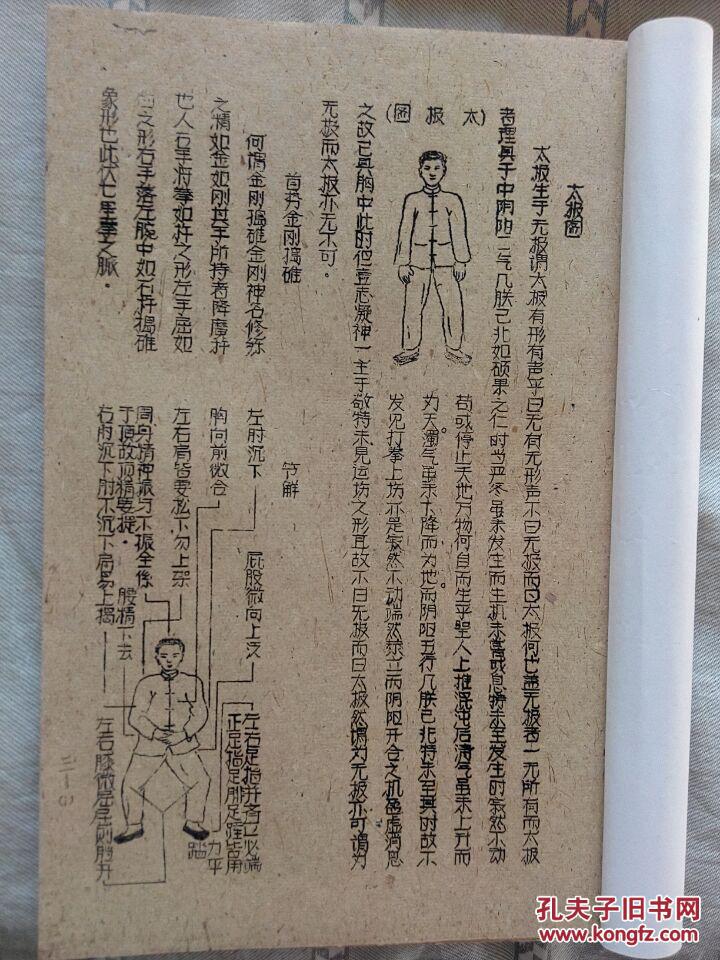 太极图
太极生于无极谓太极有形有声乎曰无有无形声不曰无极而曰太极何也盖无极者一无所有而太极
者理具于中阴阳二气几朕已兆如硕果之仁时当严冬虽未发生而生机未尝或息特未至发生时寂然不动
(太极图)
苟或停止天地万物何自而生乎圣人上推混沌后清气虽未上升而
为天浊气虽未下降而为地而阴阳五行几朕已兆特未至其时故不
发见打拳上场亦是寂然不动端然恭立而阴阳开合之机盈虚消息
之故已具胸中此时但壹志凝神一主于敬特未见运场之形且故不曰无极而曰太极然谓为无极亦可谓为
无极而太极亦无不可。
首势金刚捣碓
何谓金刚捣碓金刚神名修炼
之精如金如刚其手所持者降魔杵
也人右手将拳如杵之形左手屈如
之形右手落左腕中如石杵捣碓
象形也此伏七 之脉。
节解
左肘沉下
胸向前微合
左右肩皆要松下勿上架
周身精神振与不振全係
于頂故顶精要提。
右肘沉下肘不沉下肩易上揭
腰精下去
屁股微向上泛
左右足指并齐立必端
正足指足腓足踵皆用
力平
踏
左右膝微屈足前膛开
三-(1)
孔夫子旧书网
www.kongfz.com